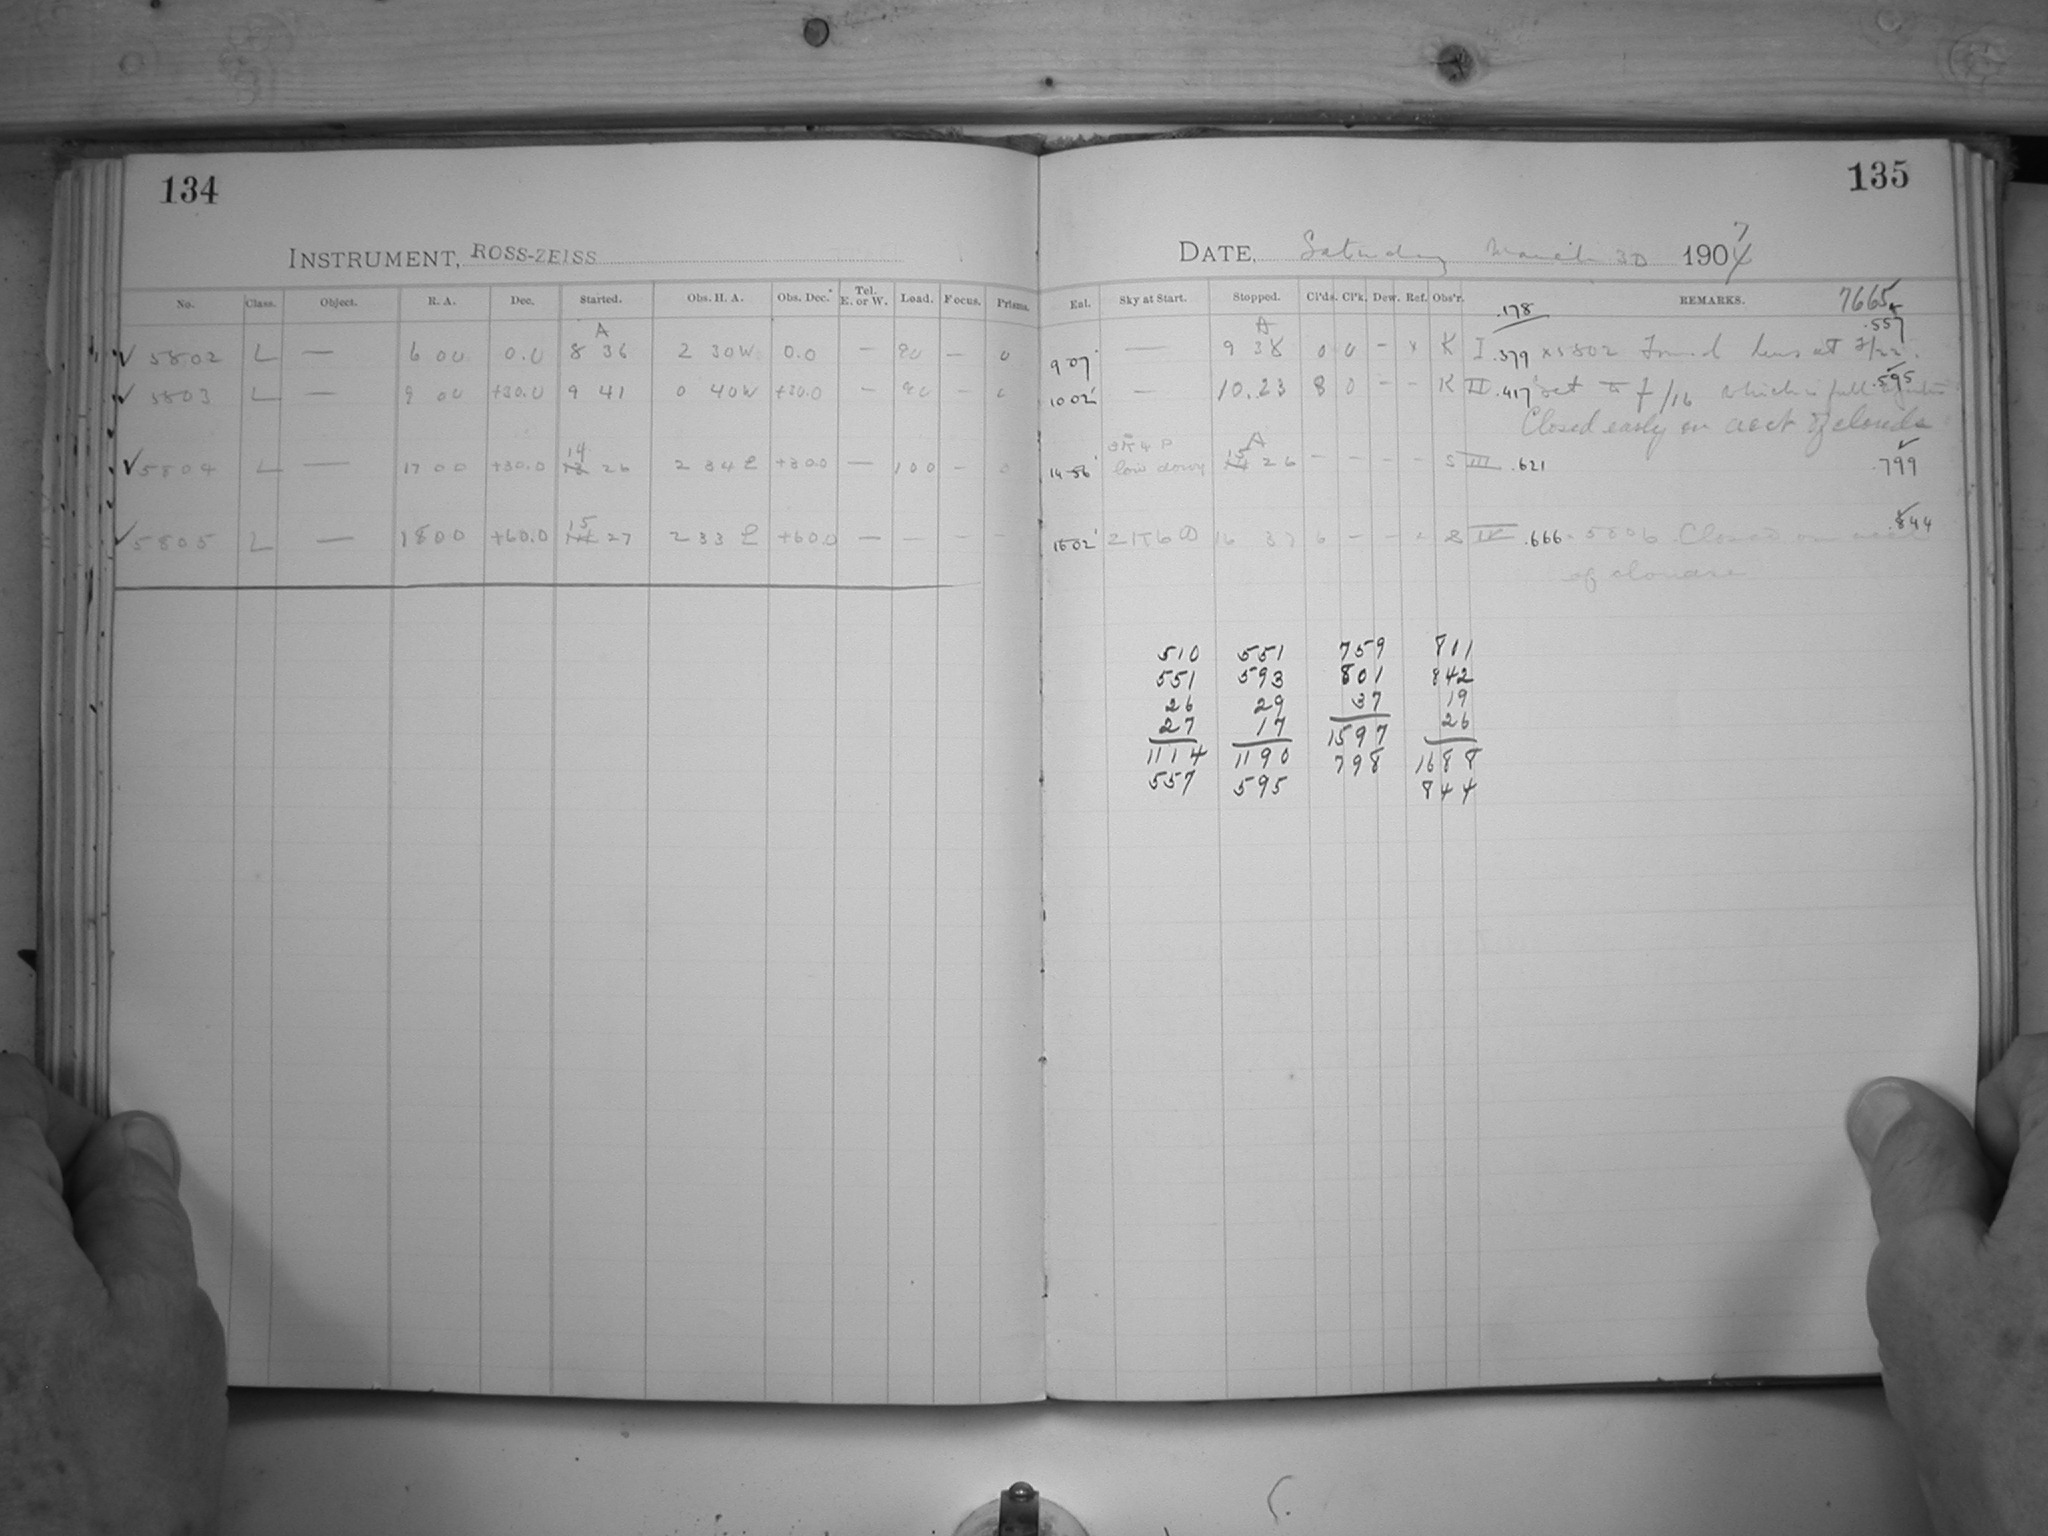 134
INSTRUMENT, ROSS-ZEISS
No. Class. Object. R. A. Dec. Started. Obs. H. A. Obs. Dec. Tel. E. or W. Load. Focus. Prisms.
A
✓ 5802 L — 6 00 0.0 8 36 2 30W 0.0 — 90 — 0
✓ 5803 L — 9 00 +30.0 9 41 0 40W +30.0 — 90 —
14
✓ 5804 L — 17 00 +30.0 13 26 2 34 E +30.0 — 100 —
15
✓ 5805 L — 18 00 +60.0 14 27 2 33 E +60.0 — — — —
135
DATE, Saturday March 30 1904
7
Exl. Sky at Start. Stopped. Cl'ds. Cl'k. Dew. Ref. Obs'r. REMARKS.
.178 7665
A .557
9 07 — 9 38 0 0 - x K I .379 x5802 Found lens at f/22.
.595
10 02 — 10.23 8 0 - - K II .417 set to f/16 which is full
Closed early on acct of clouds
A
15
14 56 low down 14 26 - - - - S III .621 .799
16 02 16 37 6 - - S IV .666 5806 Closed on .844
of clouds
510 551 759 801
551 593 801 842
26 29 37 19
27 17 1597 26
1114 1190 798 1688
557 595 844